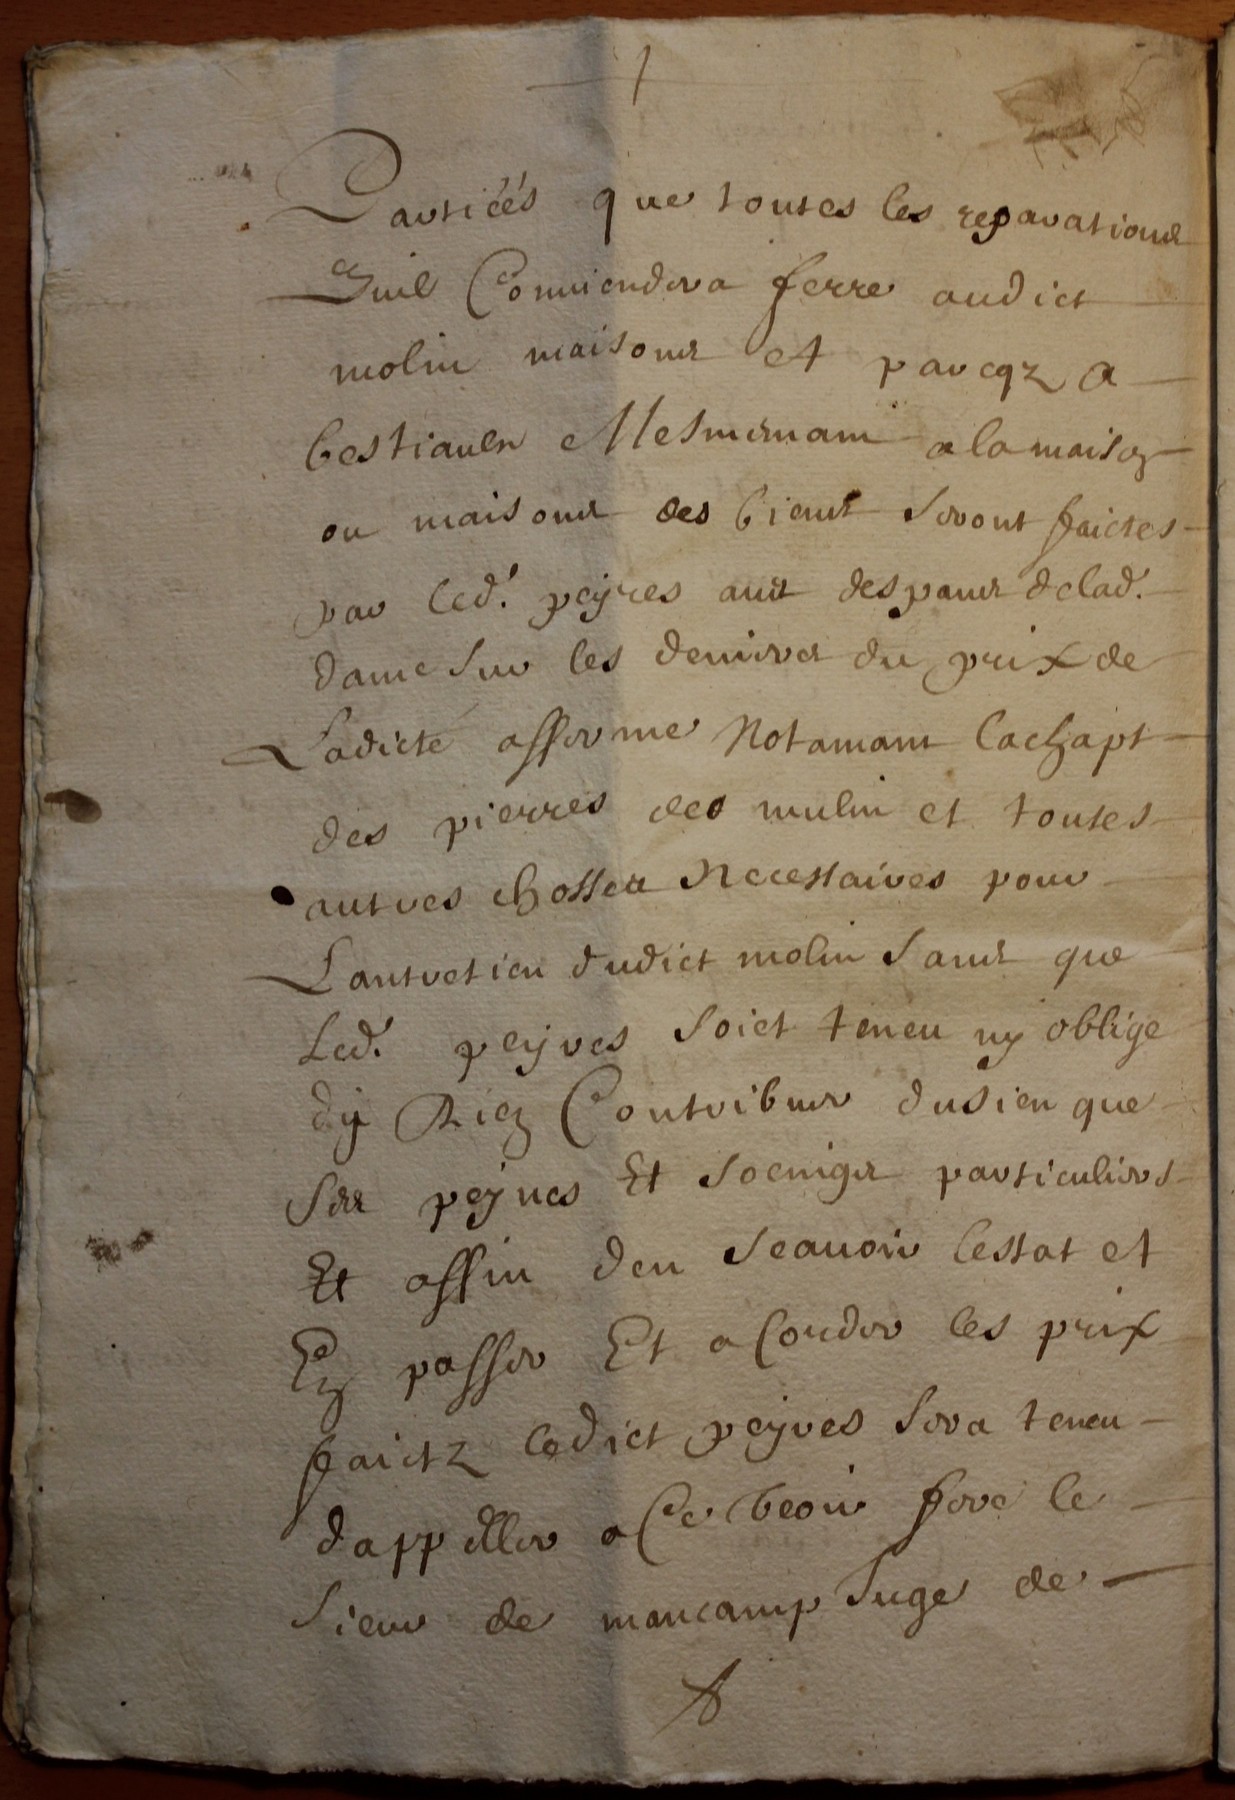 Partiées que toutes les reparations
Quil Conviendra ferre audict
molin maisons et parcqz a
bestiaulx Mesmemant a la maison
ou maisons des biens seront faictes
par led. peyres aux despans delad.
dame sur les deniers du prix de
Ladicte afferme Notamant lachapt
des pierres des mulin et toutes
autres chosses Necessaires pour
Lantretien dudict molin sans que
Led. peyres soict teneu ny oblige
dy Rien Contribuer dusien que
ses peynes Et soeings particuliers
Et affin den scavoir lestat et
En passer Et acorder les prix
faictz ledict peyres sera teneu
dappeller a Ce veoir fere le
sieur de mancamp Juge de